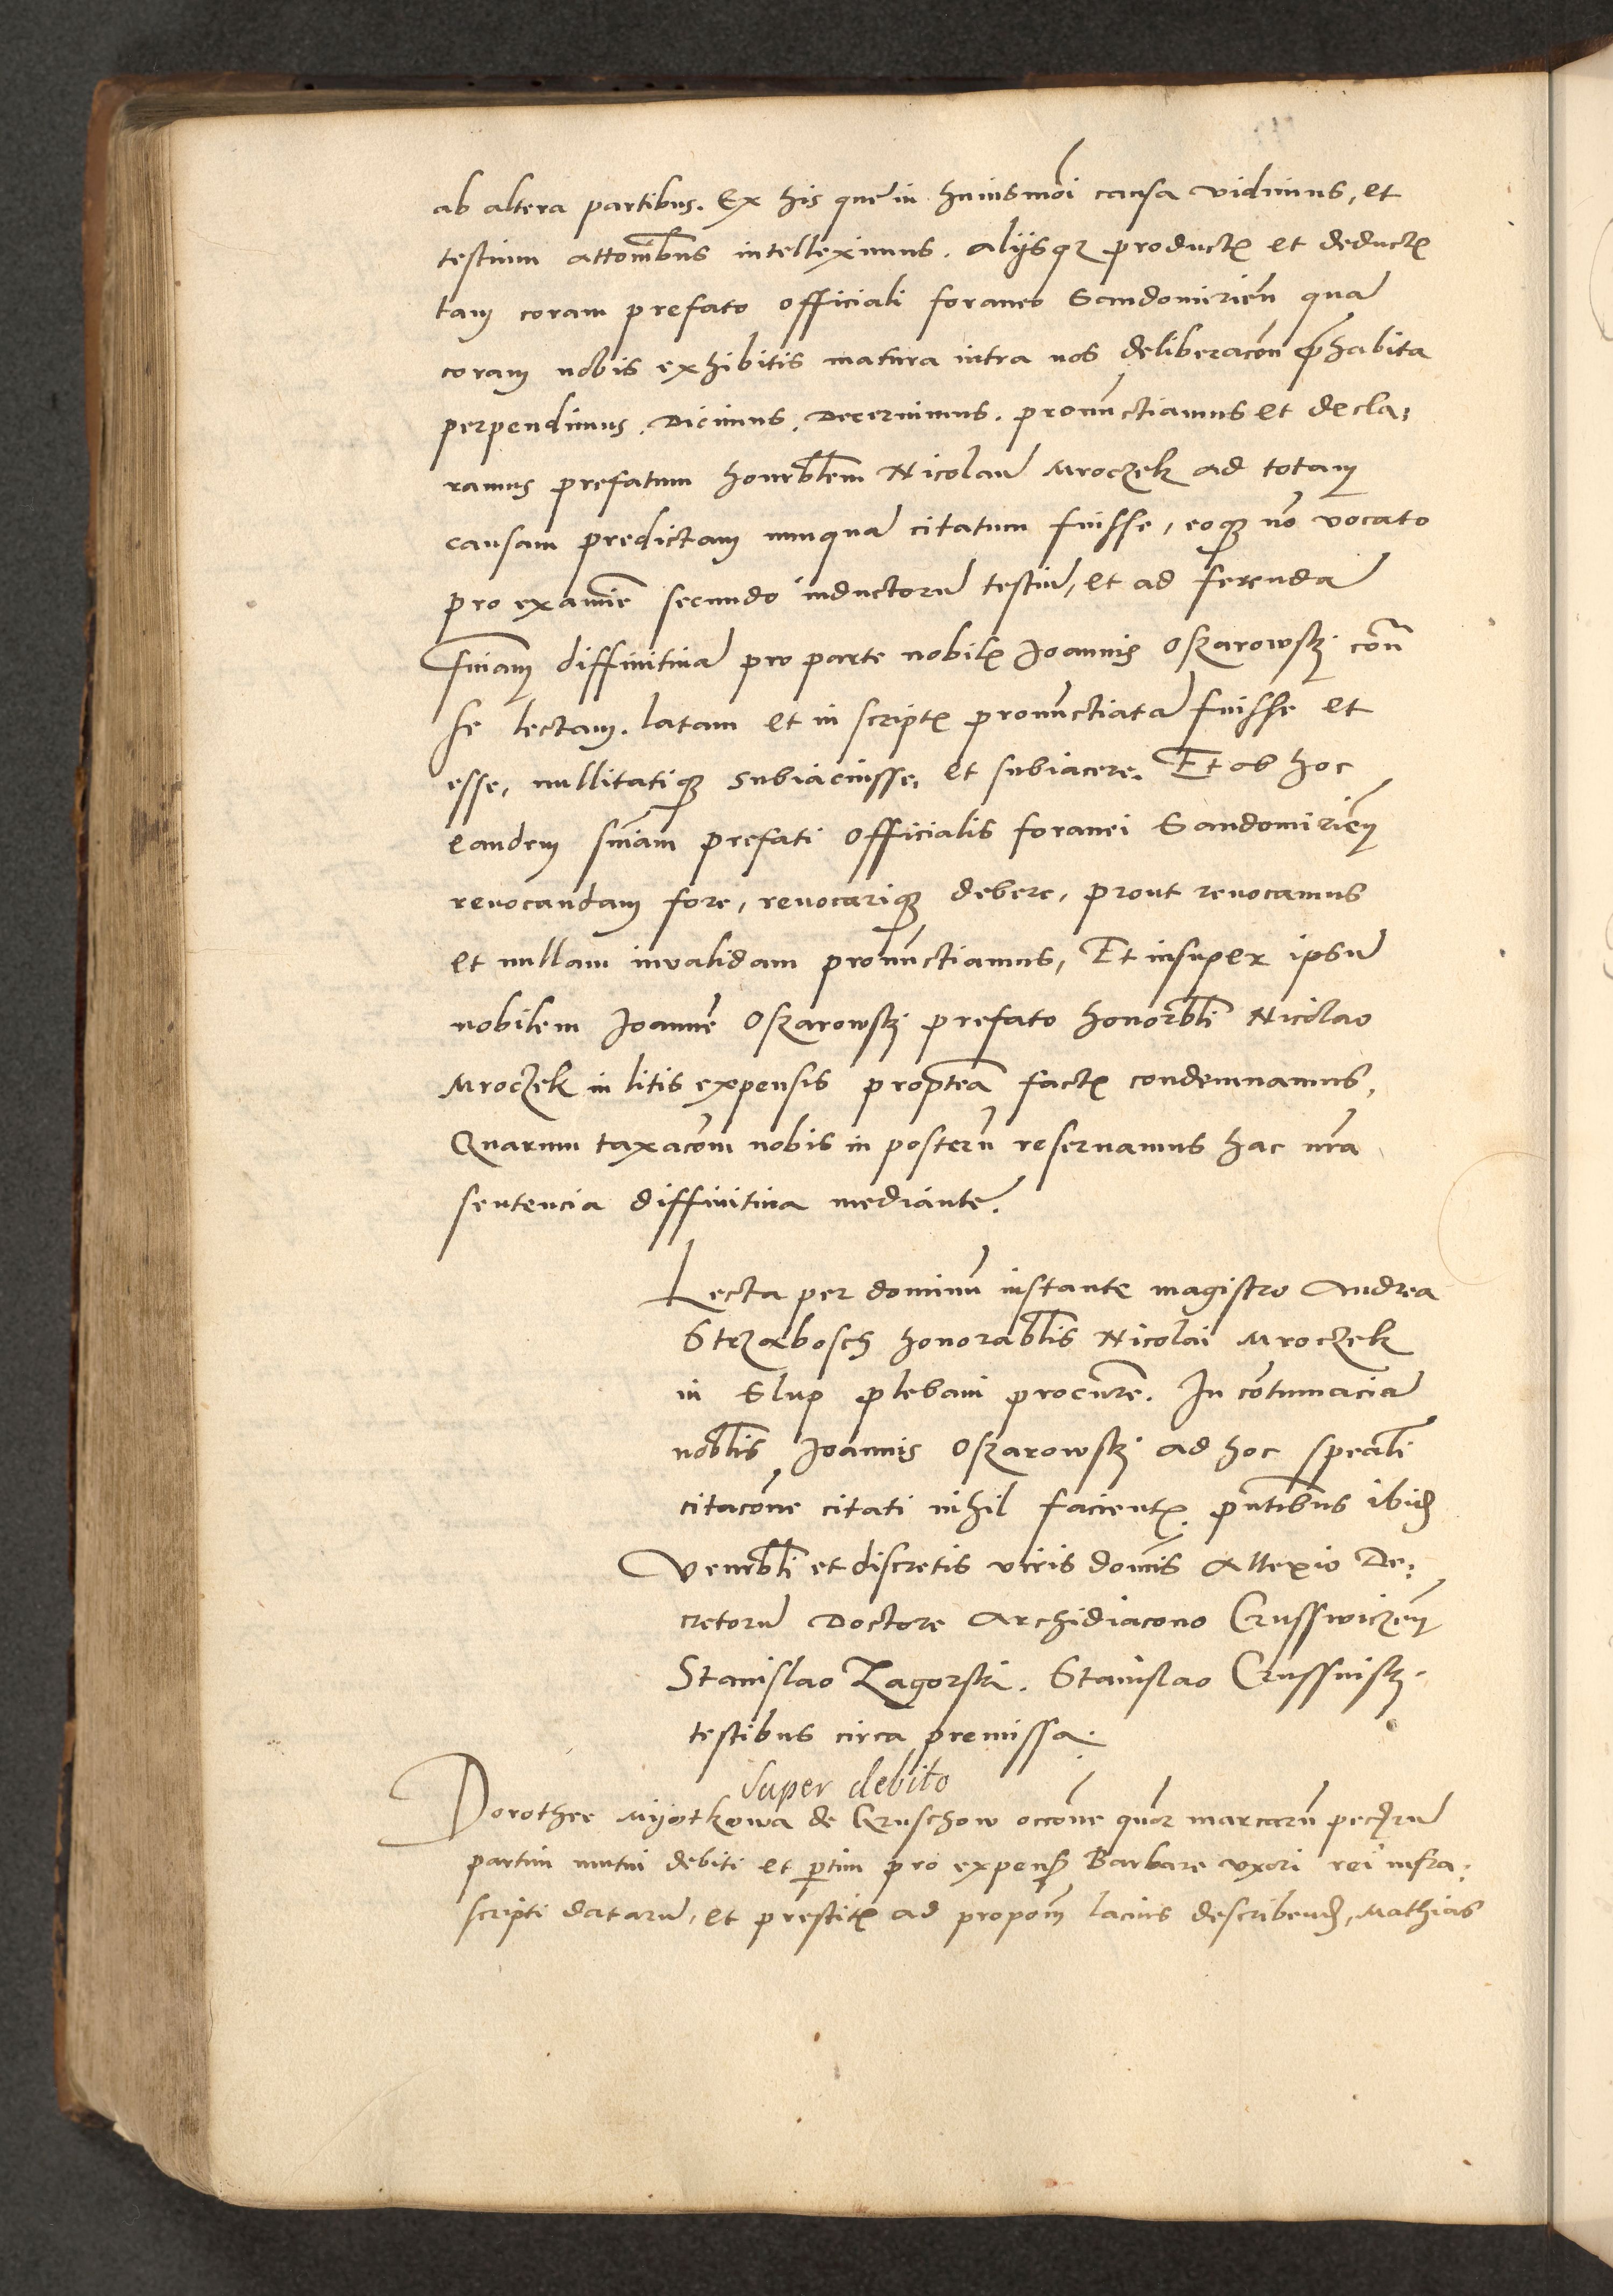 ab altera partibus. Ex his que in huiusmoi causa vidimus, et
testium attoibus intelleximus. alijsqz product et deduct
tam coram prefato officiali foraneo Sandomirien qua
coram nobis exhibitis matura intra nos deliberacon phabita
perpendimus. Dicimus. Decernimus. pronunctiamus et decla:
ramus prefatum honrblem Nicolau Mroczek ad totam
causam predictam nunqua citatum fuisse, eoqz no vocato
pro examine secundo inductoru testiu, et ad ferenda
sniam diffinitiua pro parte nobil Joannis Oszarowskj con
se lectam. latam et in script pronunctiata fuisse et
esse, nullitatiqz subiacuisse, et subiacere. Et ob hoc
eandem sniam prefati officialis foranei Sandomirien
reuocandam fore, reuocariqz debere, prout reuocamus
et nullam inualidam pronunctiamus, Et insuper ipsu
nobilem Joanne Oszarowskj prefato honorbli Nicolao
Mroczek in litis expensis proptea fact condemnamus.
Quarum taxacom nobis in posteru reseruamus hac nra
sentencia diffinitiua mediante.
Lecta per dominu instante magistro Andrea
Strzabosch honorablis Nicolai Mroczek
in Slup plebani procure. In contumacia
noblis Joannis Oszarowskj ad hoc speali
citacone citati nihil facient. pntibus ibid
Venrbli et discretis viris domis Allexio De:
cretoru Doctore Archidiacono Crusswiczen
Stanislao Zagorski. Stanislao Crussuiskj.
testibus circa premissa.
super debito
Dorothee Mijotkowa de Kruschow occone quor marcaru pecuru
partim mutui debiti et ptim pro expens Barbare vxori rei infra:
scripti dataru, et prestit ad propom lacius describend, Mathias